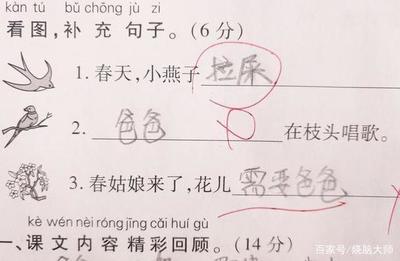 kàn tú bǔ chōng jù zi
看图,补充句子。(6分)
1.春天,小燕子拉屎
2.爸爸在枝头唱歌。
3.春姑娘来了,花儿需要爸爸
kè wén nèi róng jīng cǎi huí gù
一、课文内容精彩回顾。(14分)
百家号/烧脑大师